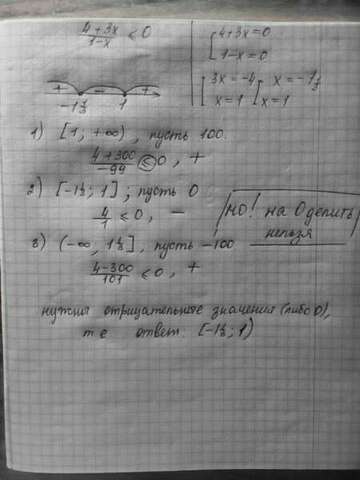 (4+3x)/(1-x) ≤ 0
[4+3x=0
[1-x=0
[3x=-4 [x=-1⅓
[x=1 [x=1
+ - +
-1⅓ 1
1) [1; +∞), пусть 100.
(4+300)/(-99) ≤ 0, +
2) [-1⅓; 1]; пусть 0
4/1 ≤ 0, -
НО! на 0 делить
нельзя
3) (-∞, 1⅓], пусть -100
(4-300)/101 ≤ 0, +
нужны отрицательные значения (либо 0),
т.е ответ: [-1⅓; 1)